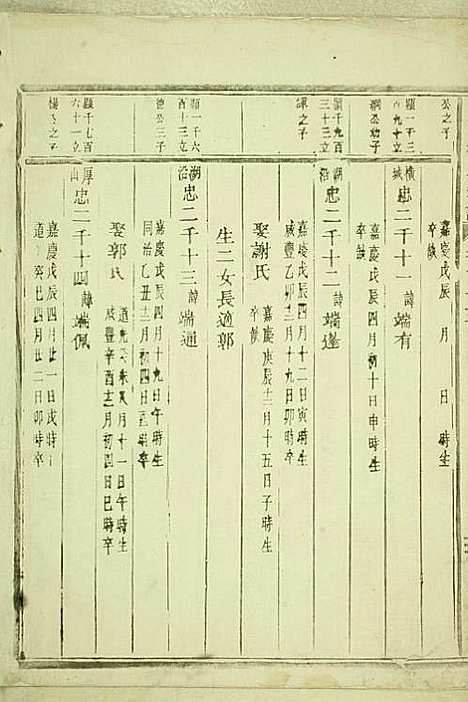 公之子
嘉慶戊辰 月 日 時生
卒缺
顯一千三
百九十立
橫
城
忠二千十一諱端有
嘉慶戊辰四月初十日申時生
卒缺
顯千九百
三十三立
湖
沿
忠二千十二諱端達
嘉慶戊辰四月十二日寅時生
咸豐壬子十二月十九日卯時卒
之子
娶謝氏
嘉慶庚辰三月十五日子時生
卒缺
生二女長適郭
顯一千六
百十三立
德公三子
湖
沿
忠二千十三諱端通
嘉慶戊辰四月十九日午時生
同治乙丑十二月初四日 時卒
娶郭氏
道光 未 月十一日午時生
咸豐辛酉十二月初四日巳時卒
顯千七百
六十一立
之子
厚
山
忠二千十四諱端佩
嘉慶戊辰四月廿一日戌時生
道光癸巳四月廿二日卯時卒